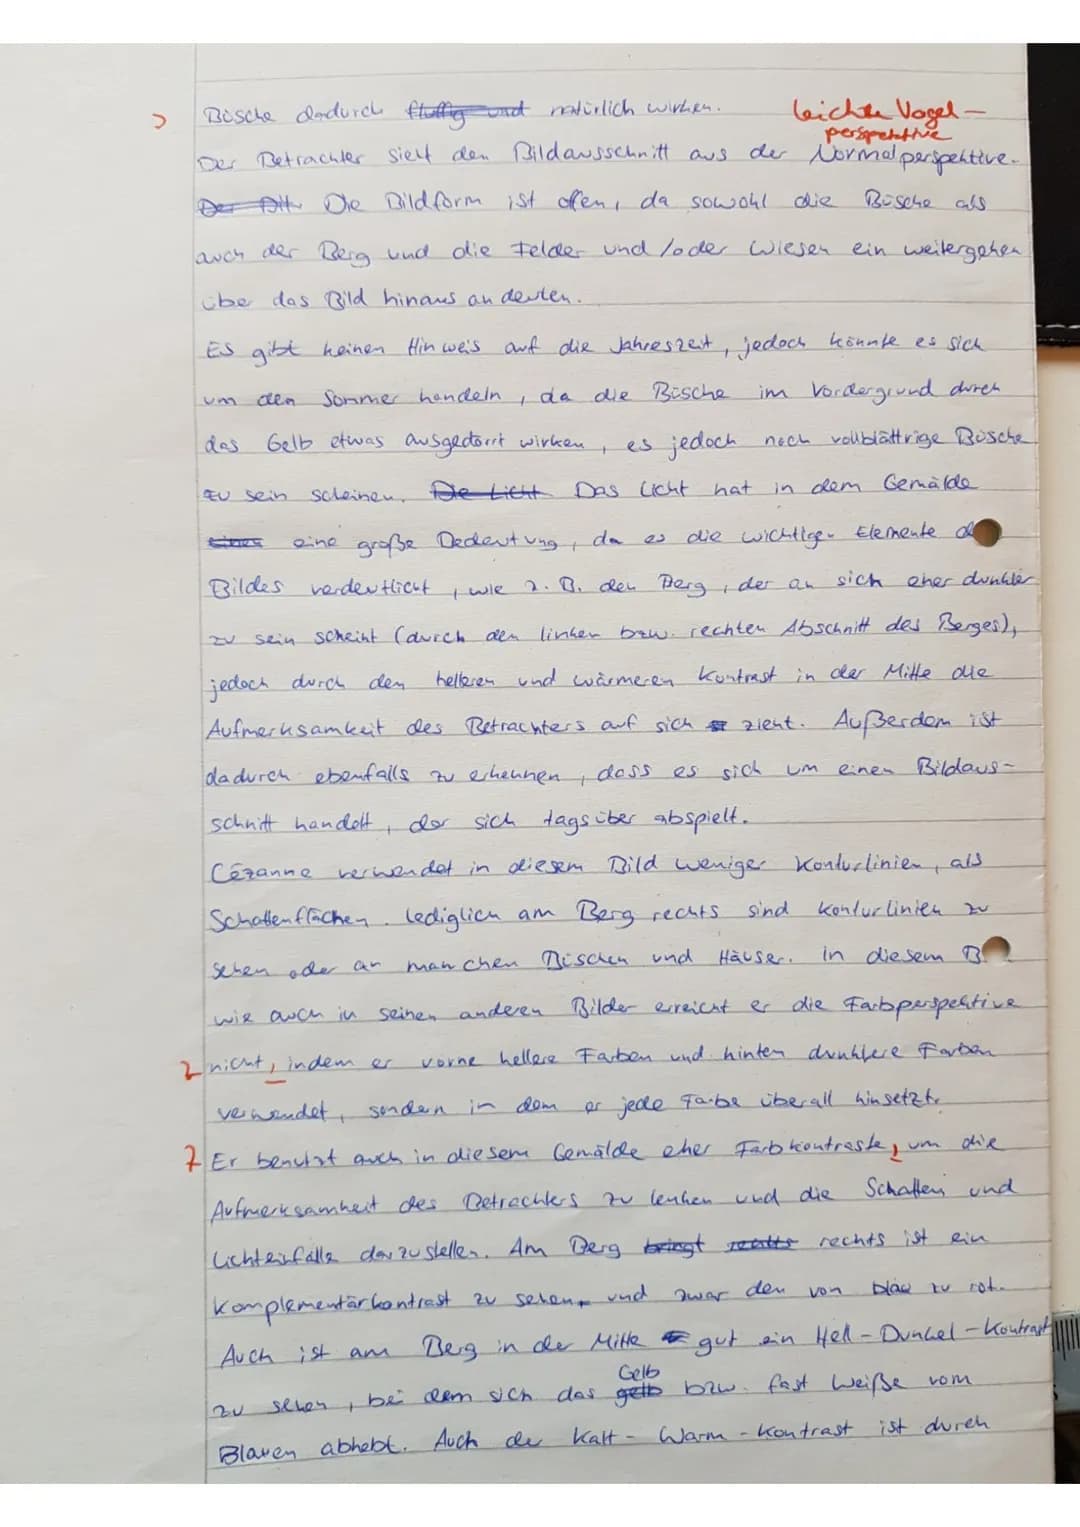 Büsche dadurch fluffig und natürlich wirken.
leichte Vogel-
perspektive
Der Betrachter sieht den Bildausschnitt aus der Normalperspektive.
Die Bildform ist offen, da sowohl die Büsche als
auch der Berg und die Felder und/oder Wiesen ein weitergehen
über das Bild hinaus andeuten.
Es gibt keinen Hinweis auf die Jahreszeit, jedoch könnte es sich
um den Sommer handeln, da die Büsche im Vordergrund durch
das Gelb etwas ausgedörrt wirken, es jedoch noch vollblättrige Büsche
zu sein scheinen. Die Licht Das Licht hat in dem Gemälde
eine große Bedeutung, da es die wichtigen Elemente
Bildes verdeutlicht, wie z. B. den Berg, der an sich eher dunkler
zu sein scheint (durch den linken bzw. rechten Abschnitt des Berges),
jedoch durch den helleren und wärmeren Kontrast in der Mitte die
Aufmerksamkeit des Betrachters auf sich zieht. Außerdem ist
dadurch ebenfalls zu erkennen, dass es sich um einen Bildaus-
schnitt handelt, der sich tagsüber abspielt.
Cézanne verwendet in diesem Bild weniger Konturlinien, als
Schattenflächen. Lediglich am Berg rechts sind Konturlinien zu
sehen oder an manchen Büschen und Häuser. In diesem B
wie auch in seinen anderen Bilder erreicht er die Farbperspektive
2 nicht, indem er vorne hellere Farben und hinten dunklere Farben
verwendet, sondern in dem er jede Farbe überall hinsetzt.
7 Er benutzt auch in diesem Gemälde eher Farbkontraste, um die
Aufmerksamkeit des Betrachters zu lenken und die Schatten und
Lichteinfälle darzustellen. Am Berg bringt rechts rechts ist ein
Komplementärkontrast zu sehen, und zwar den von blau zu rot.
Auch ist am Berg in der Mitte gut ein Hell-Dunkel-Kontrast
Gelb
zu sehen, bei dem sich das gelb bzw. fast Weiße vom
Blauen abhebt. Auch der Kalt-Warm-Kontrast ist durch